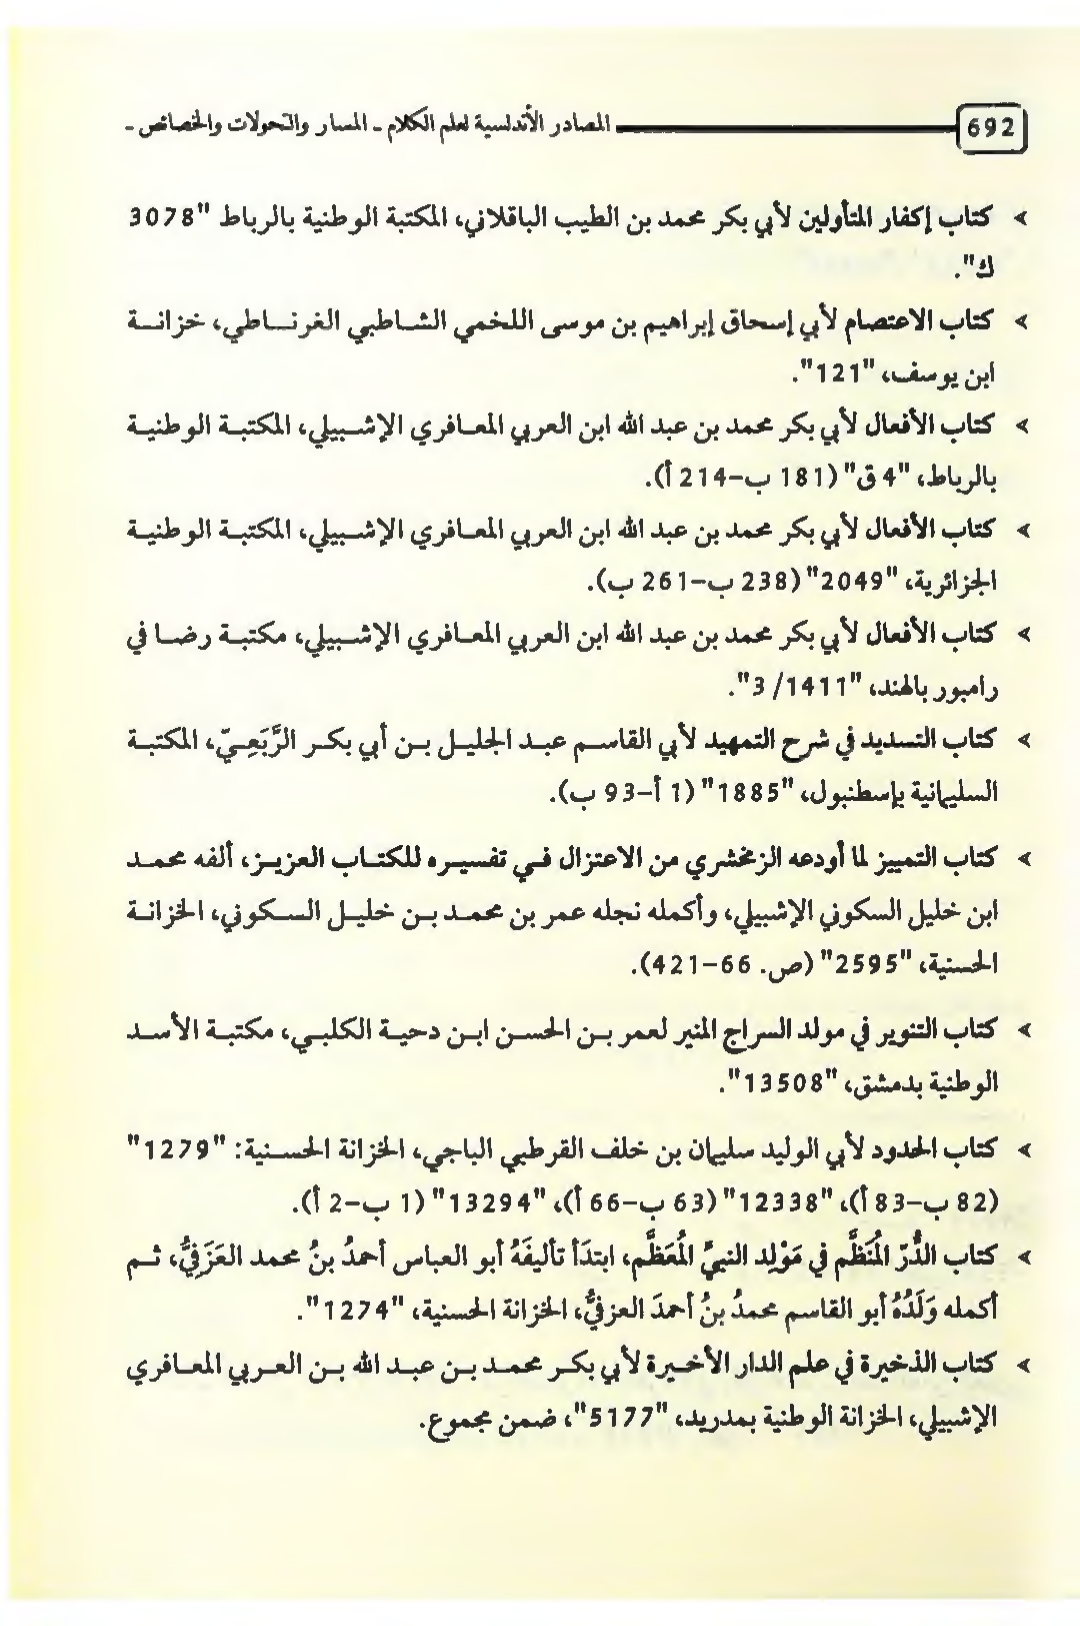 692 المصادر الأندلسية لعلم الكلام - المسار والتحولات والخصائص -
➢ كتاب إكفار المتأولين لأبي بكر محمد بن الطيب الباقلاني، المكتبة الوطنية بالرباط "3078
ك".
➢ كتاب الاعتصام لأبي إسحاق إبراهيم بن موسى اللخمي الشاطبي الغرناطي، خزانة
ابن يوسف، "121".
➢ كتاب الأفعال لأبي بكر محمد بن عبد الله ابن العربي المعافري الإشبيلي، المكتبة الوطنية
بالرباط، "4 ق" (181 ب-214 أ).
➢ كتاب الأفعال لأبي بكر محمد بن عبد الله ابن العربي المعافري الإشبيلي، المكتبة الوطنية
الجزائرية، "2049" (238 ب-261 ب).
➢ كتاب الأفعال لأبي بكر محمد بن عبد الله ابن العربي المعافري الإشبيلي، مكتبة رضا في
رامبور بالهند، "1411/ 3".
➢ كتاب التسديد في شرح التمهيد لأبي القاسم عبد الجليل بن أبي بكر الرَّبَعِيّ، المكتبة
السليمانية بإسطنبول، "1885" (1 أ-93 ب).
➢ كتاب التمييز لما أودعه الزمخشري من الاعتزال في تفسيره للكتاب العزيز، ألفه محمد
ابن خليل السكوني الإشبيلي، وأكمله نجله عمر بن محمد بن خليل السكوني، الخزانة
الحسنية، "2595" (ص. 66-421).
➢ كتاب التنوير في مولد السراج المنير لعمر بن الحسن ابن دحية الكلبي، مكتبة الأسد
الوطنية بدمشق، "13508".
➢ كتاب الحدود لأبي الوليد سليمان بن خلف القرطبي الباجي، الخزانة الحسنية: "1279"
(82 ب-83 أ)، "12338" (63 ب-66 أ)، "13294" (1 ب-2 أ).
➢ كتاب الدُّرّ المُنَظَّم في مَوْلِد النبيِّ المُعَظَّم، ابتدَأ تأليفَهُ أبو العباس أحمدُ بنُ محمد العَزَفِيُّ، ثم
أكمله وَلَدُهُ أبو القاسم محمدُ بنُ أحمدَ العزفيُّ، الخزانة الحسنية، "1274".
➢ كتاب الذخيرة في علم الدار الأخيرة لأبي بكر محمد بن عبد الله بن العربي المعافري
الإشبيلي، الخزانة الوطنية بمدريد، "5177"، ضمن مجموع.